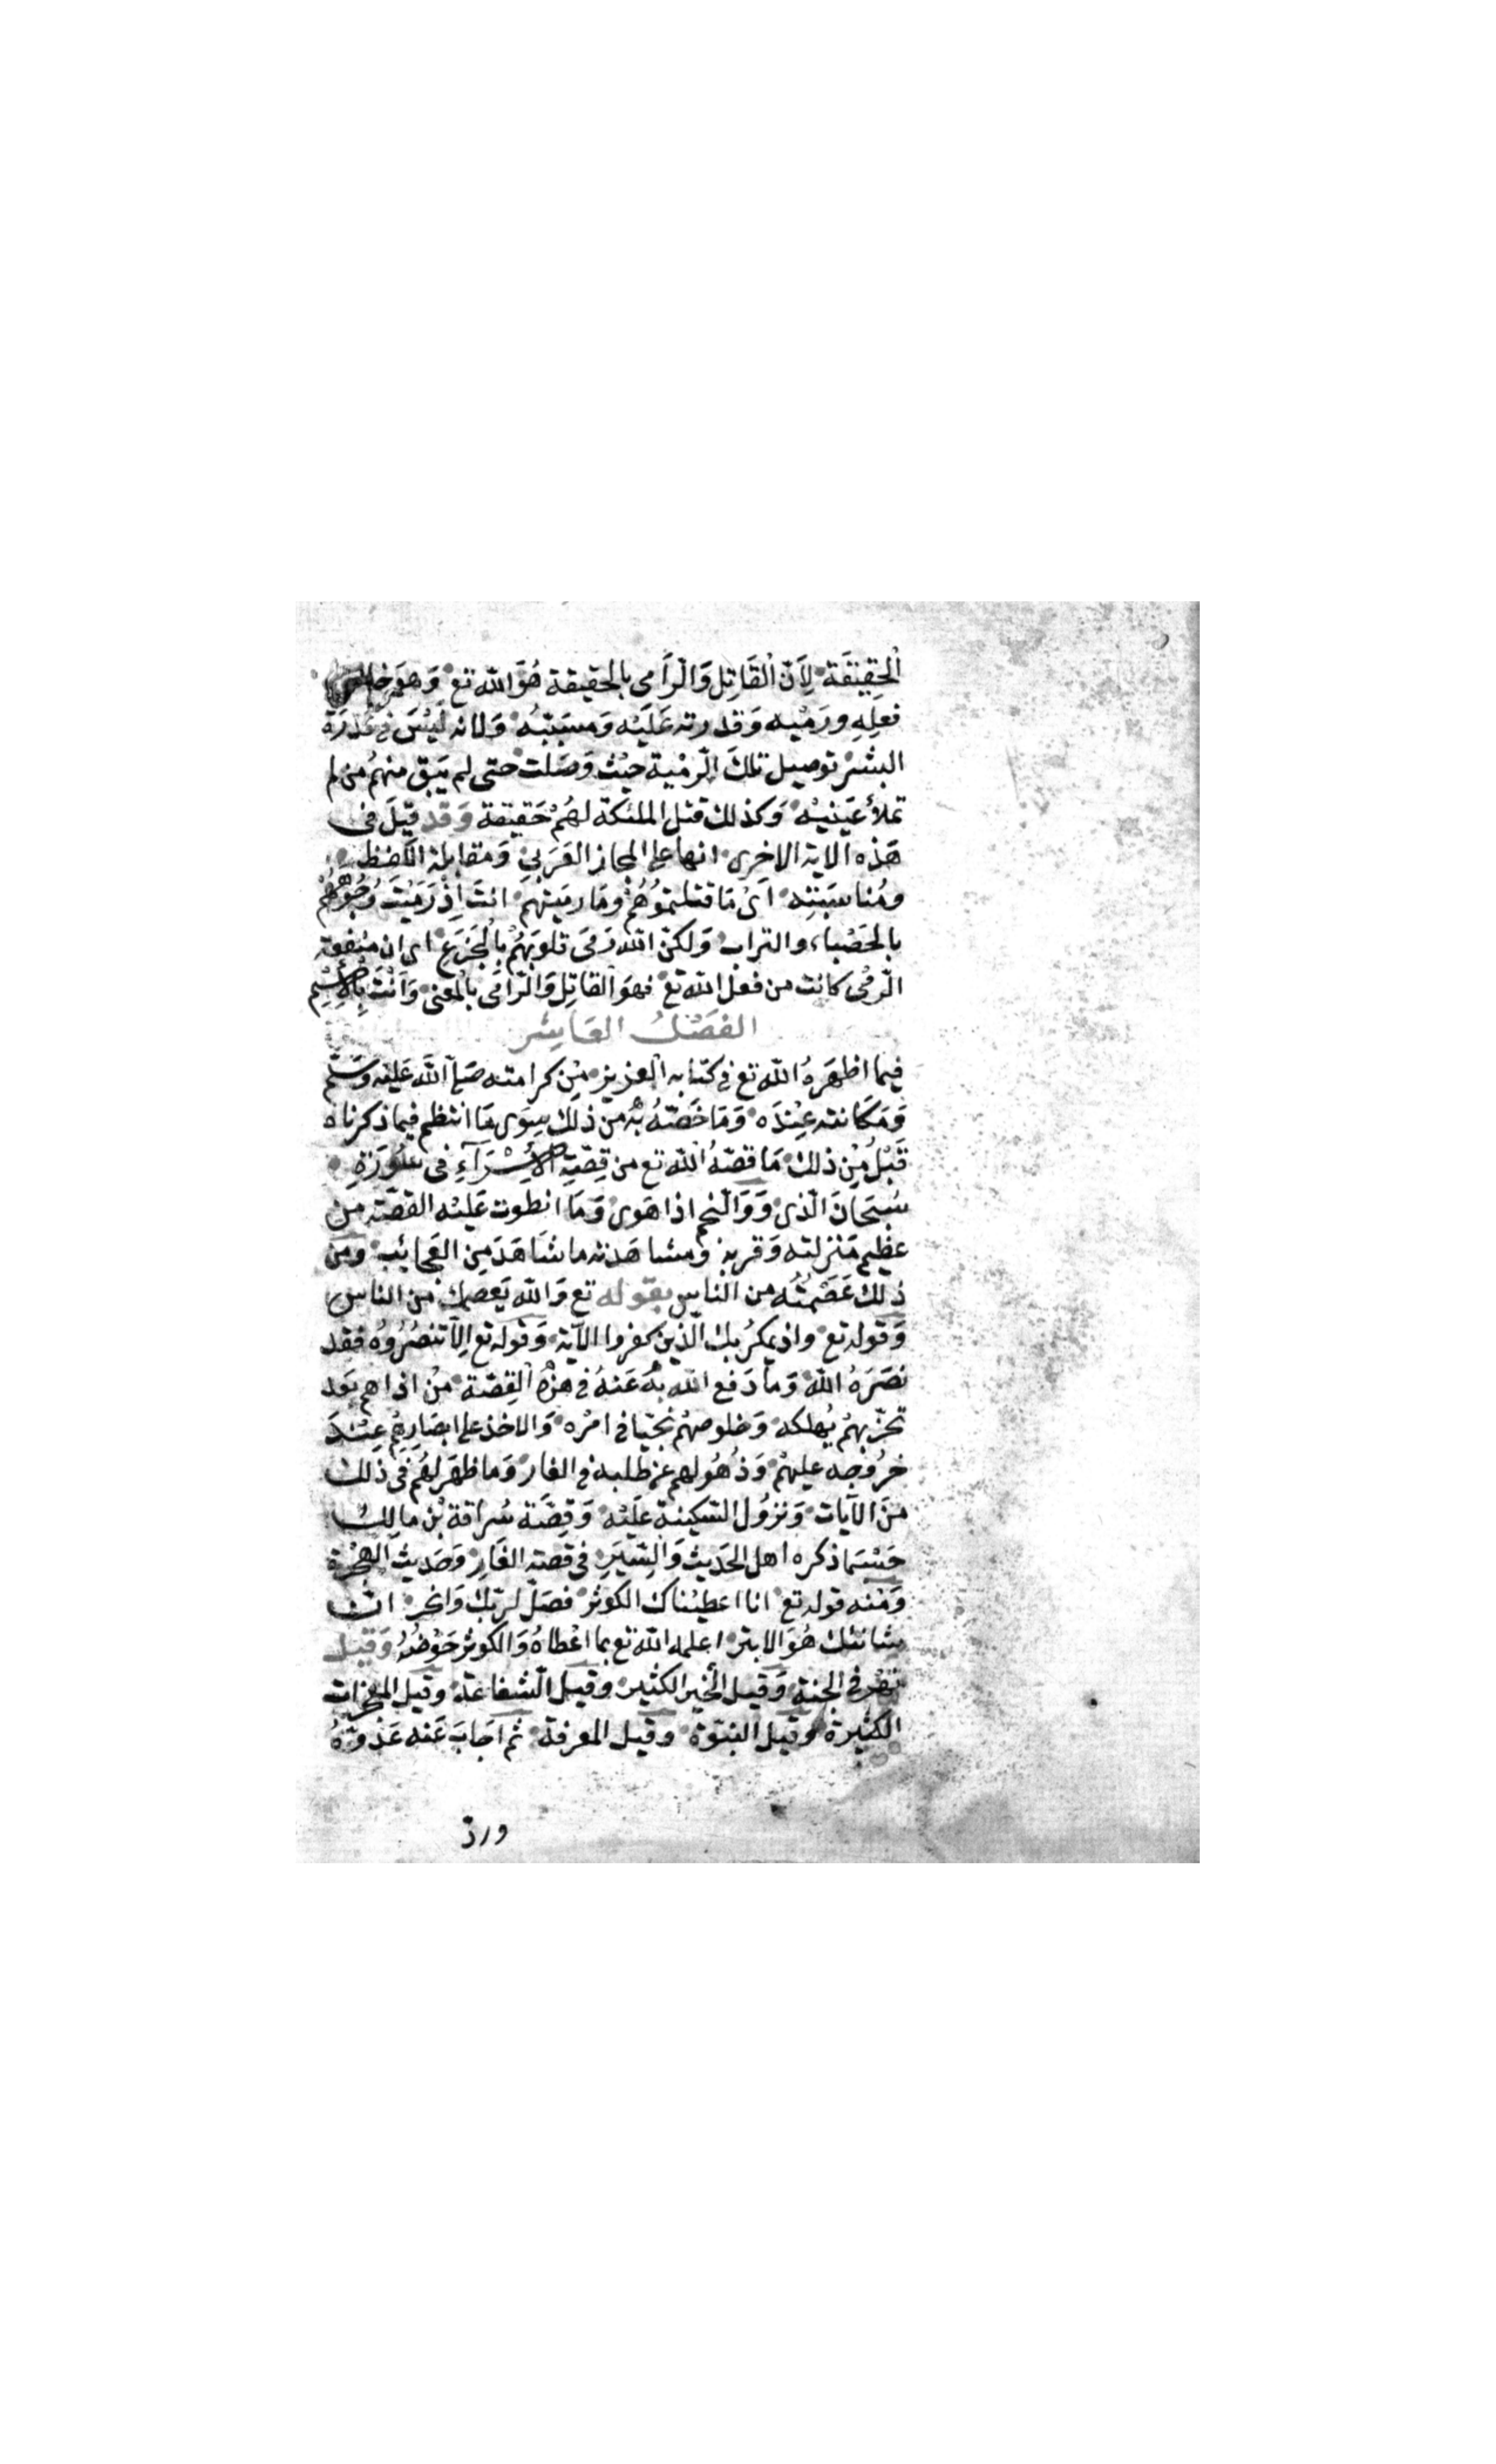 الحقيقة لِأَنّ الْقَاتِل وَالرَّامى بالحقيقة هُوَ الله تع وَهوَ خالق
فعلِهِ ورَمْيه وَقدرته عَلَيْه وَمسَبّبُه وَلانه لَيْسَ فى قدرَة
البشر توصيل تلكَ الرّمْية حيْث وَصَلت حتى لم يَبق منهُم من لم
تملأ عَيْنيْه وَكذلك قتل الملئكة لهُمْ حَقيقة وَقد قيلَ فى
هَذه الاية الاخرى انها على المجاز العَرَبىّ وَمقابلة اللفظ
ومُناسَبَتِه اىْ مَا قتلتموُهُمْ وَمَا رميتهم انتَ اِذْ رَمَيْتَ وُجُوهَهُمْ
بالحَصْباء والتراب وَلكنّ الله رَمَى قلوبَهُمْ بالْجَزَعِ اى ان منفعة
الرّمْى كانت من فعل الله تع فهوَ القاتِل وَالرّامى بالْمَعْنى وَاَنْتَ بِالْاِسْم
الفَصْلُ العَاشِر
فيما اظهَرَهُ الله تع فى كتابه العزيز منْ كرامته صَلى اللهُ عَليْه وَسَلّم
وَمَكَانته عِنْدَه وَمَا خَصّهُ بِهِ منْ ذلك سِوَى مَا انتظم فيما ذكرناه
قَبْلُ مِنْ ذلك مَا قصّهُ الله تع من قِصّةِ الْاِسْرَآءِ فى سُورَةِ
سُبْحَانَ الّذى وَ وَالنجم اذا هَوى وَمَا انطوت عَليْه القصّة من
عظيم مَنْزلته وَقربه ومشاهَدته ما شَاهَدَ مِن العَجائب ومن
ذلك عَصْمتُه من النّاس بقوله تع وَالله يَعصمك منَ الناس
وَقوله تع واذ يمكرُ بك الّذين كفروا الآية وَقوله تع اِلّا تَنصُرُوهُ فقد
نصَرَهُ الله وَما دَفع الله بهِ عَنهُ فى هذِهِ الْقِصّة منْ اذاهم بَعد
تَحزّبهُمْ لهلكه وَخلوصهُم نجيّا فى امْره وَالاخذ على ابصَارِهِمْ عِنْدَ
خرُوجه عليهمْ وَذهُولهم عن طلبه فى الغار وَما ظهَرَ لهُم فى ذلك
منَ الآيات وَنزوُل السّكينة عَلَيْه وَقِصّة سُراقة بْن مالك
حَسَبما ذكره اهل الحَديث وَالسّيَرِ فى قصّة الغَارِ وَحَديث الْهِجْرَة
وَمنْه قوله تع انا اعطيْناك الكوثر فصَلّ لربّك وَانحر انّ
شانئك هُوَ الابتر اعلمه الله تع بما اعْطاهُ وَالكوثر حَوْضُهُ وَقيل
نَهْر فى الجنة وَقيل الخير الكثير وقيل الشفاعَة وقيل المعجزات
الكثيرة وقيل النبوّة وقيل المعرفة ثم اجَابَ عَنه عَدُوّهُ
ورد